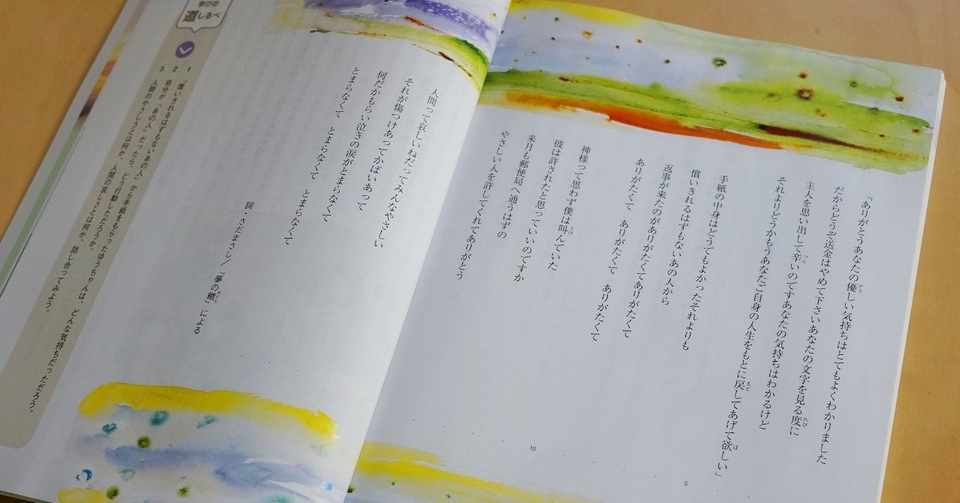 「ありがとうあなたの優しい気持ちはとてもよくわかりました
だからどうぞ送金はやめて下さいあなたの文字を見る度に
主人を思い出して辛いのですあなたの気持ちはわかるけど
それよりどうかもうあなたご自身の人生をもとに戻してあげて欲しい」
手紙の中身はどうでもよかったそれよりも
償いきれるはずもないあの人から
返事が来たのがありがたくてありがたくて
ありがたくて ありがたくて ありがたくて
神様って思わず僕は叫んでいた
彼は許されたと思っていいのですか
来月も郵便局へ通うはずの
やさしい人を許してくれてありがとう
人間って哀しいねだってみんなやさしい
それが傷つけあってかばいあって
何だかもらい泣きの涙がとまらなくて
とまらなくて とまらなくて とまらなくて
詞・さだまさし/「夢の轍」による
9
10
学びの
道しるべ
1 「償いきれるはずもないあの人」から手紙をもらったゆうちゃんは、どんな気持ちだっただろう。
2
3
話し合ってみよう。